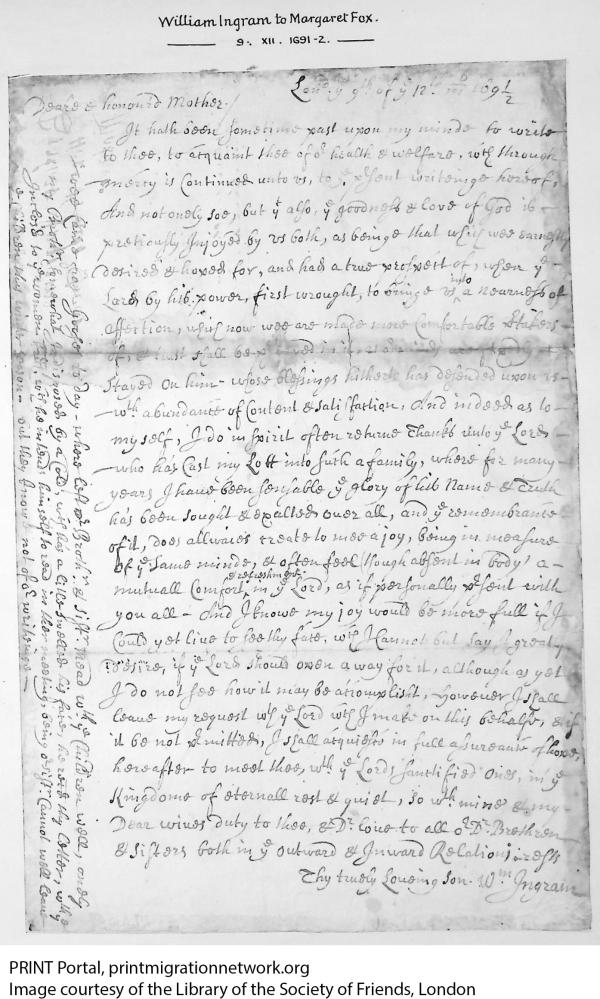 William Ingram to Margaret Fox.
9. XII. 1691-2.
Lond yͤ 9th of yͤ 12th mo 169½
Deare & honourd Mother./
It hath been sometime past upon my minde to write
to thee, to acquaint thee of oͬ health & welfare, wͨͪ through
mercy is Continued unto us, to yͤ psent writeinge hereof,
And not onely soe, but yͭ also, yͤ goodness & love of God is
pretiously Injoyed by us both, as beinge that which wee earnestly
desired & hoped for, and had a true prospect of, when yͤ
Lord by his power, first wrought, to bringe us into a nearness of
affection, which now wee are made more Comfortable ptakers
of, & trust shall be
Stayed on him whose blessings hitherto has desended upon us
wth abundance of Content & satisfaction, And indeed as to
my self, I do in spirit often returne Thanks unto yͤ Lord
who has Cast my Lott into such a family, where for many
years I have been sensable yͤ glory of his Name & Truth
has been sought & exalted over all, and yͤ remembrance
of it, does allwaies create to mee a joy, being in measure
of yͤ same minde, & often feel though absent in body a
mutuall Comfort & refreshmt in yͤ Lord, as if personally psent with
you all - And I knowe my joy would be more full if I
Could yet live to see thy face, wͨͪ I Cannot but say, I greatly
desire, if yͤ Lord should open a way for it, although as yet
I do not see how it may be accomplisht, however I shall
leave my request wth yͤ Lord wͨͪ I make on this behalfe, & if
it be not pmitted, I shall acquiesce in full assureance of hope,
hereafter to meet thee, wth yͤ Lords sanctified Ones, in yͤ
Kingdome of eternall rest & quiet, so wth mine & my
Dear wives duty to thee, & Dͬ love to all oͬ Dͬ Brethren
& Sisters both in yͤ Outward & Inward Relation, I rest
Thy truely Loveing Son Wm Ingram
Wee Came from Goose to day where left oͬ Brothͬ & Sistͬ Mead wth yͤ Children well, onely
my Brothͬ somewhat Indisposed by a Cold, wͨͪ has a little swelled his face, he read thy Letter, wth yͤ
Inclosed to yͤ women, wͨͪ he intend himself to read in their meeting, being oͬ sistͬ Cannot well leave
yͤ Children this winter season - but they knowe not of oͬ writeinge
PRINT Portal, printmigrationnetwork.org
Image courtesy of the Library of the Society of Friends, London